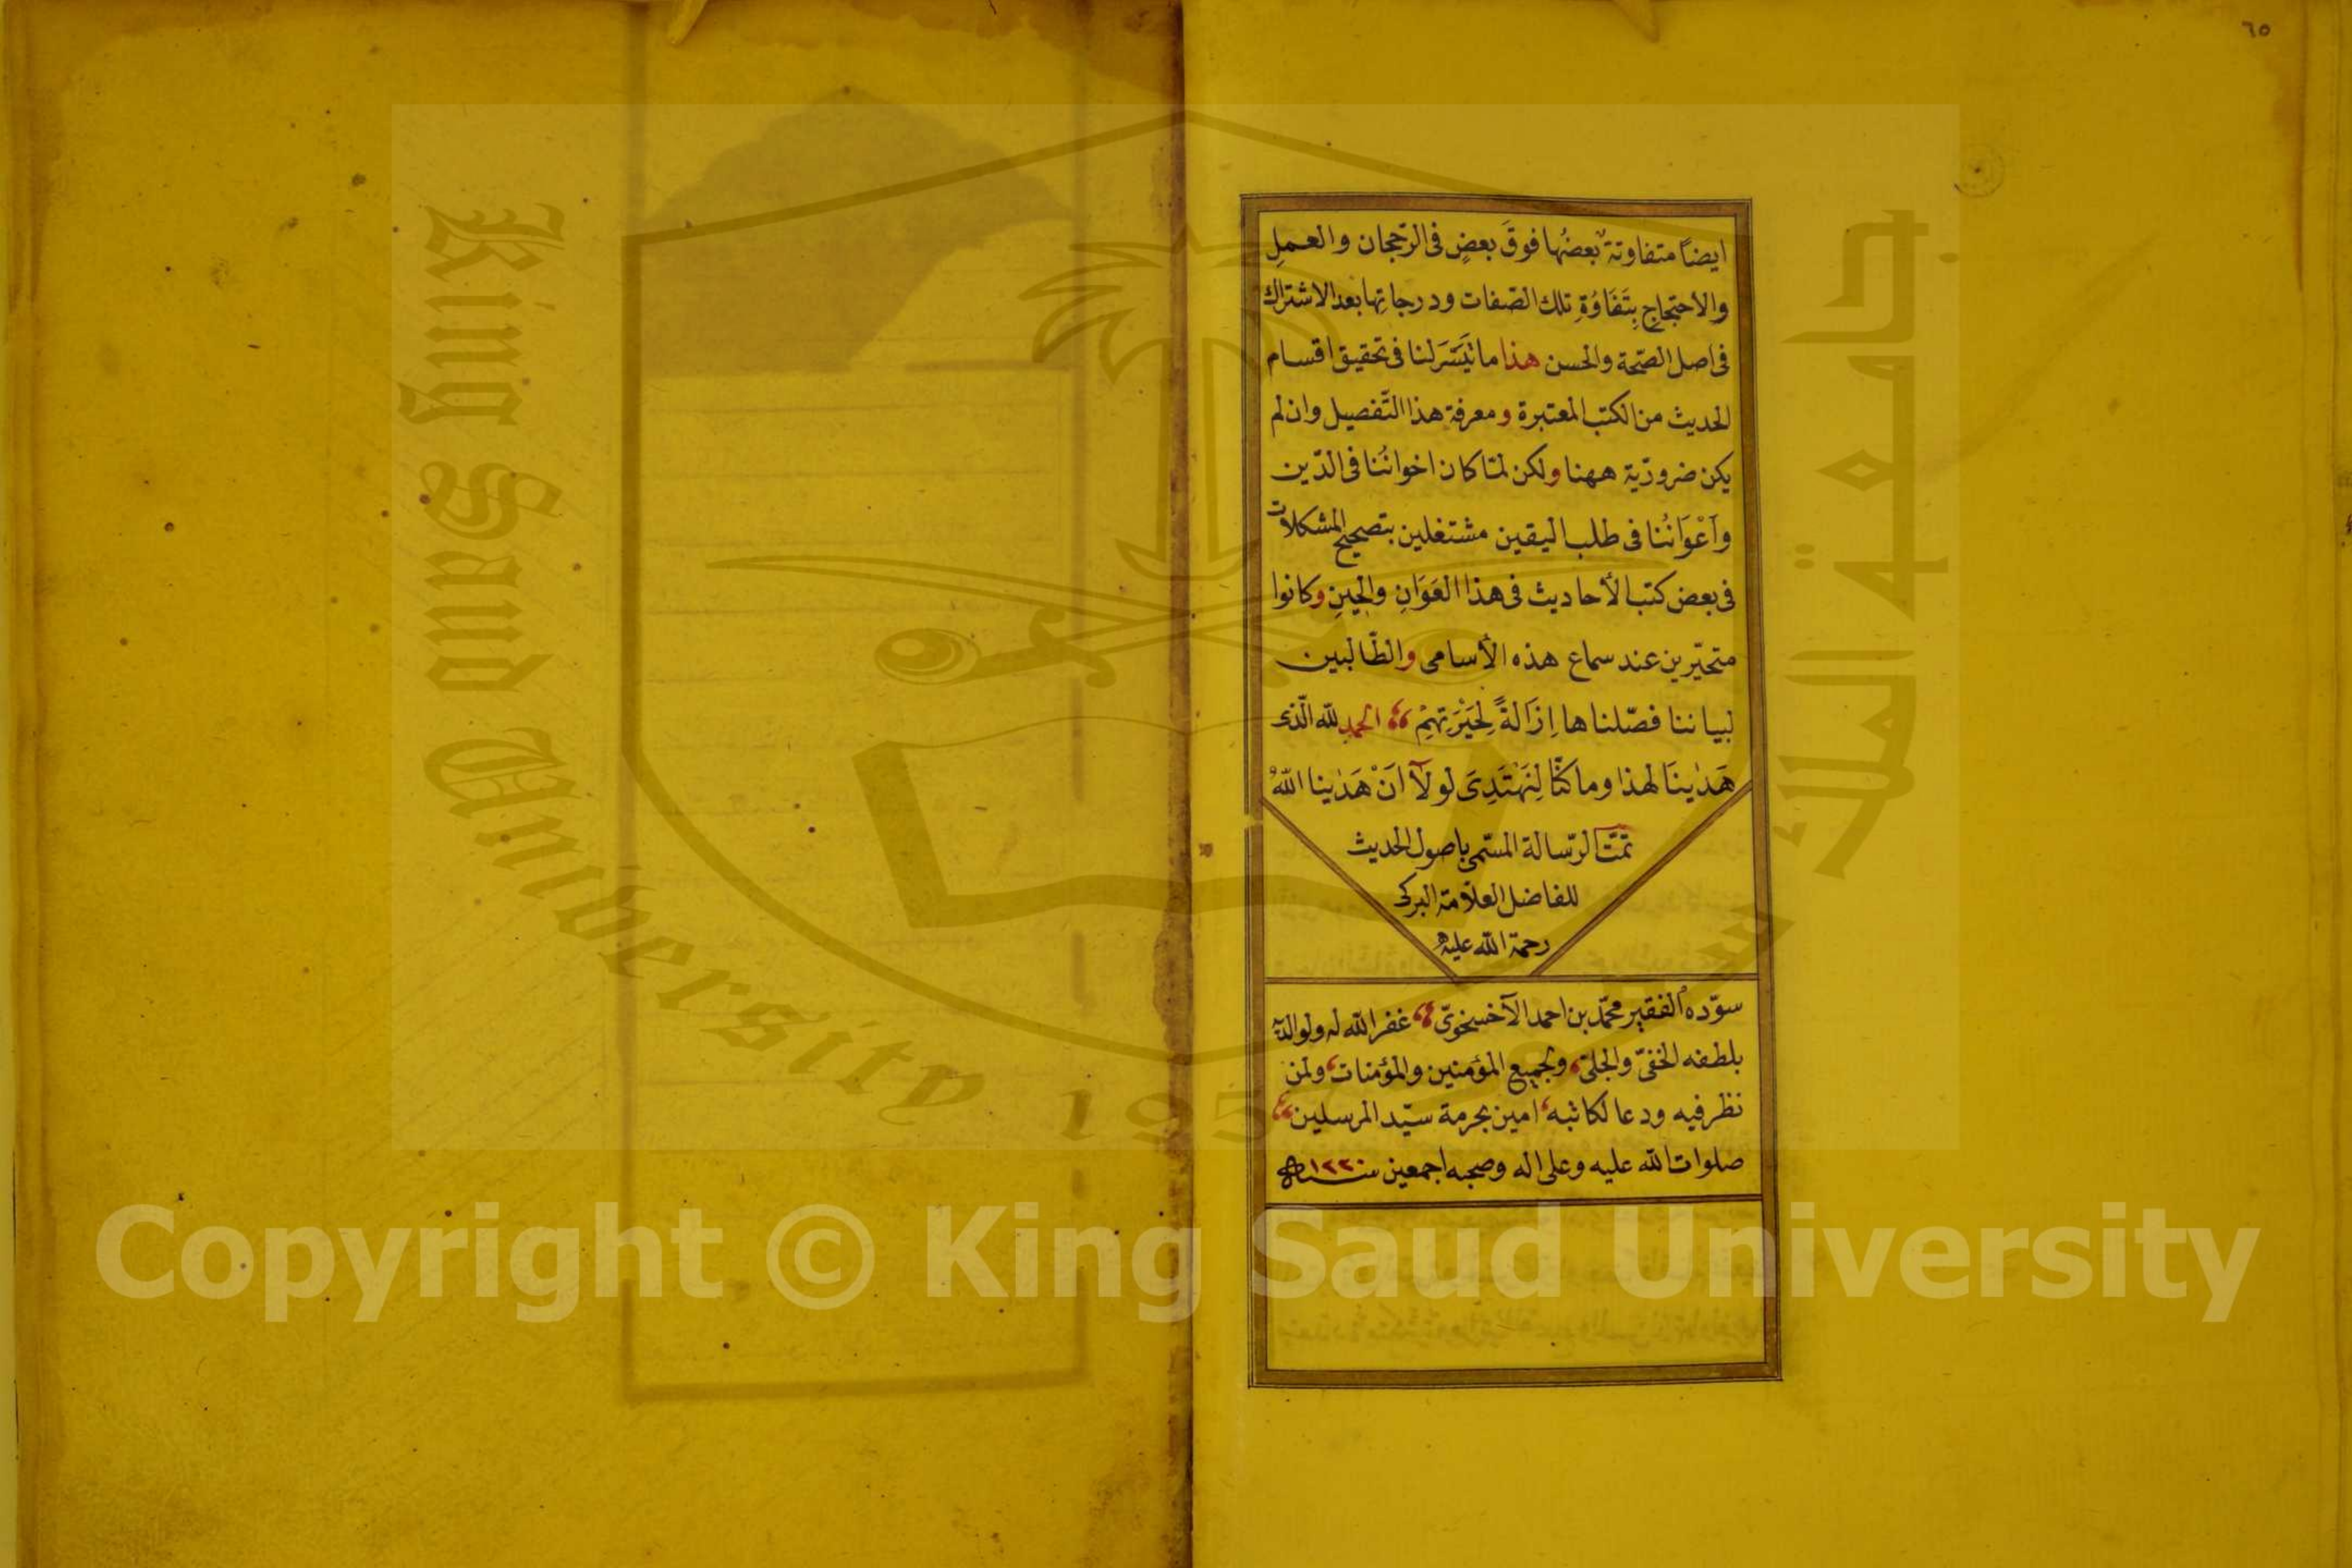 ٦٥
ايضاً متفاوتة بعضُها فوقَ بعضٍ فى الرّجحان والعملِ
والأحتجاجِ بِتَفَاوُةِ تلك الصّفات ودرجاتِها بعد الاشتراك
فى اصل الصّحّة والحسن هذا ما تَيَسَّرَ لنا فى تحقيق اقسام
الحديث من الكتب المعتبرة ومعرفة هذا التّفصيل وان لم
يكن ضروريّة ههنا ولكن لمّا كان اخوانُنا فى الدّين
وَاَعْوَانُنا فى طلب اليقين مشتغلين بتصحيح المشكلات
فى بعض كتب الأحاديث فى هذا العَوَانِ والحِينِ وكانوا
متحيّرين عند سماع هذه الأسامى والطّالبين
لبياننا فصّلناها اِزَالةً لِحَيْرَتِهِمْ الحمد للّه الّذى
هَدٰينَا لهذا وما كنّا لِنَهْتَدِىَ لولآ اَنْ هَدٰينا اللّهُ
تمّت الرّسالة المسّمى باصول الحديث
للفاضل العلّامة البركى
رحمة اللّه عليه
سوّده الفقير محمّد بن احمد الآخسخوىّ غفر اللّه له ولوالديه
بلطفه الخفىّ والجلىّ، ولجميع المؤمنين والمؤمنات، ولمن
نظر فيه ودعا لكاتبه، امين بحرمة سيّد المرسلين
صلوات اللّه عليه وعلى اله وصحبه اجمعين سنة ١٢٢٠
King Saud University 195
جامعة الملك
Copyright © King Saud University